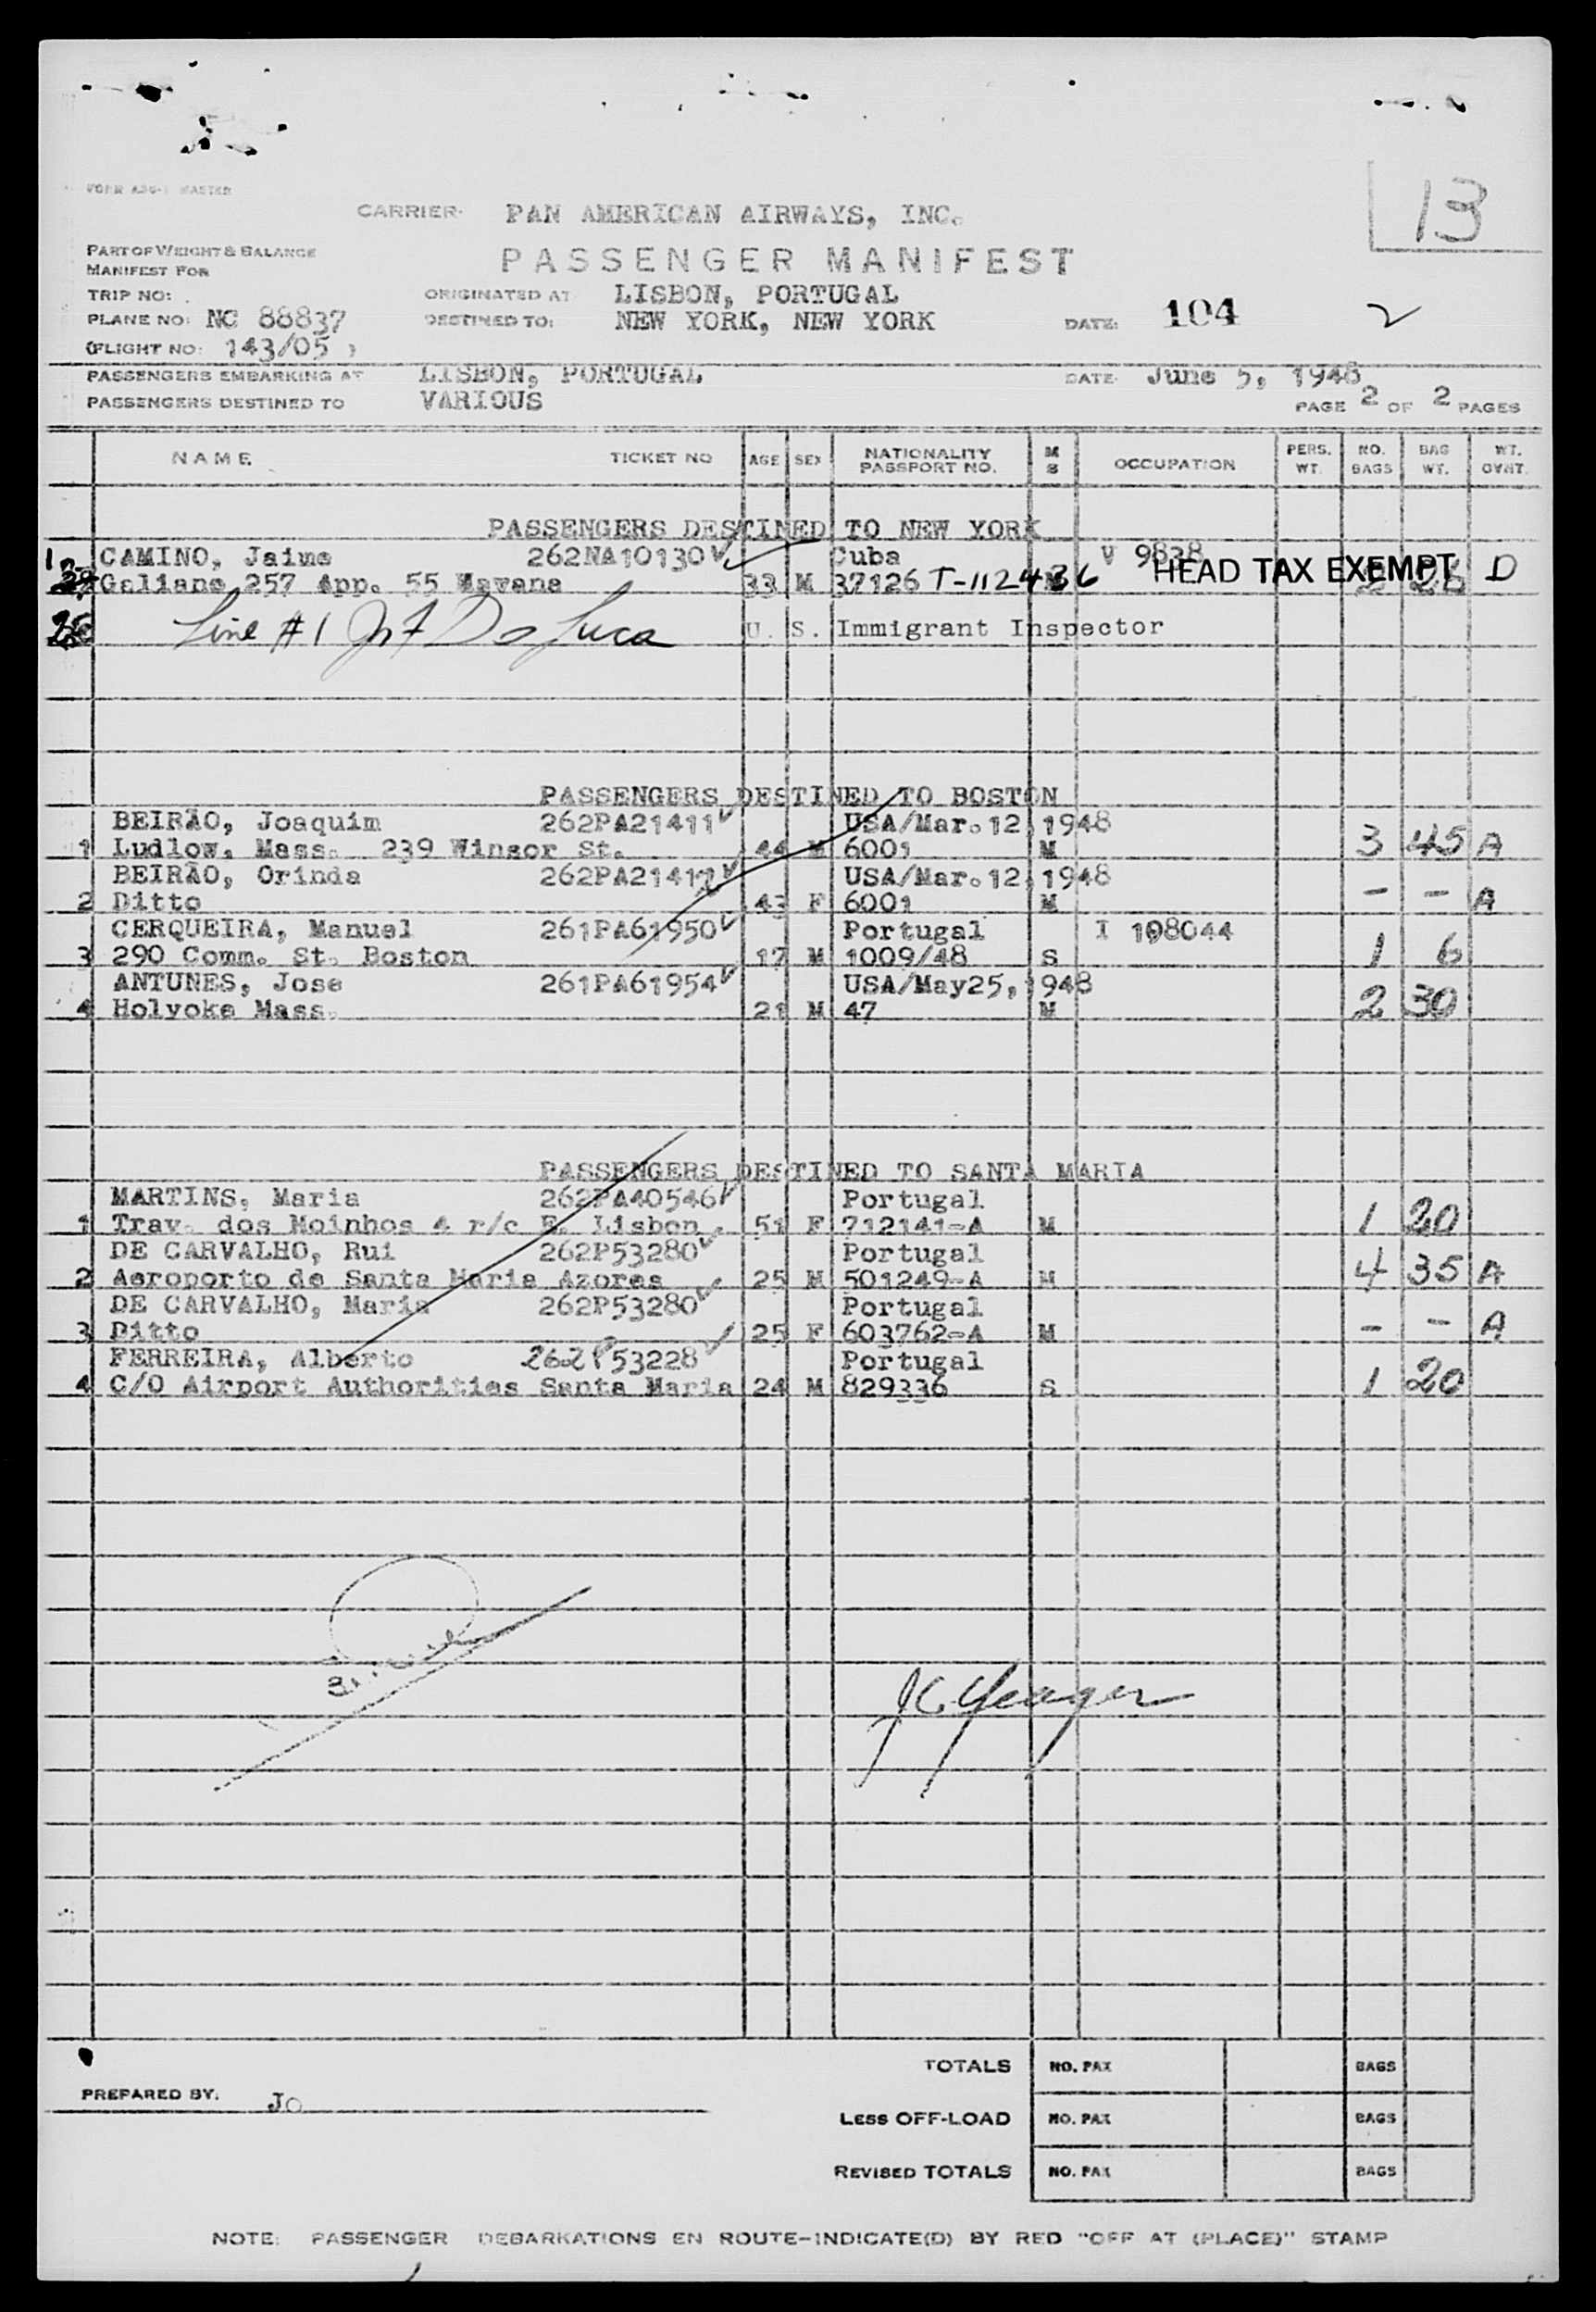 FORM ADG-1 MASTER
13
CARRIER: PAN AMERICAN AIRWAYS, INC.
PART OF WEIGHT & BALANCE
MANIFEST FOR
PASSENGER MANIFEST
TRIP NO:
ORIGINATED AT LISBON, PORTUGAL
PLANE NO: NC 88837 DESTINED TO: NEW YORK, NEW YORK DATE: 104 2
(FLIGHT NO: 143/05 )
PASSENGERS EMBARKING AT LISBON, PORTUGAL DATE June 5, 1948
PASSENGERS DESTINED TO VARIOUS PAGE 2 OF 2 PAGES
NAME TICKET NO AGE SEX NATIONALITY PASSPORT NO. M S OCCUPATION PERS. WT. NO. BAGS BAG WT. WT. OVHT.
PASSENGERS DESTINED TO NEW YORK
1 CAMINO, Jaime 262NA10130 Cuba V 9838
Galiano 257 App. 55 Havana 33 M 37126 T-112436 HEAD TAX EXEMPT D
Line #1 De Luca U. S. Immigrant Inspector
PASSENGERS DESTINED TO BOSTON
BEIRÃO, Joaquim 262PA21411 USA/Mar.12,1948
1 Ludlow, Mass. 239 Winsor St. 44 M 6001 M 3 45 A
BEIRÃO, Orinda 262PA21412 USA/Mar.12,1948
2 Ditto 43 F 6001 M - - A
CERQUEIRA, Manuel 261PA61950 Portugal I 198044
3 290 Comm. St. Boston 17 M 1009/48 S 1 6
ANTUNES, Jose 261PA61954 USA/May25,1948
4 Holyoke Mass. 21 M 47 M 2 30
PASSENGERS DESTINED TO SANTA MARIA
MARTINS, Maria 262PA40546 Portugal
1 Trav. dos Moinhos 4 r/c E. Lisbon 51 F 712141-A M 1 20
DE CARVALHO, Rui 262P53280 Portugal
2 Aeroporto de Santa Maria Azores 25 M 501249-A M 4 35 A
DE CARVALHO, Maria 262P53280 Portugal
3 Ditto 25 F 603762-A M - - A
FERREIRA, Alberto 262P53228 Portugal
4 C/O Airport Authorities Santa Maria 24 M 829336 S 1 20
JC Yeager
TOTALS NO. PAX BAGS
PREPARED BY: Jo
LESS OFF-LOAD NO. PAX BAGS
REVISED TOTALS NO. PAX BAGS
NOTE: PASSENGER DEBARKATIONS EN ROUTE-INDICATE(D) BY RED "OFF AT (PLACE)" STAMP